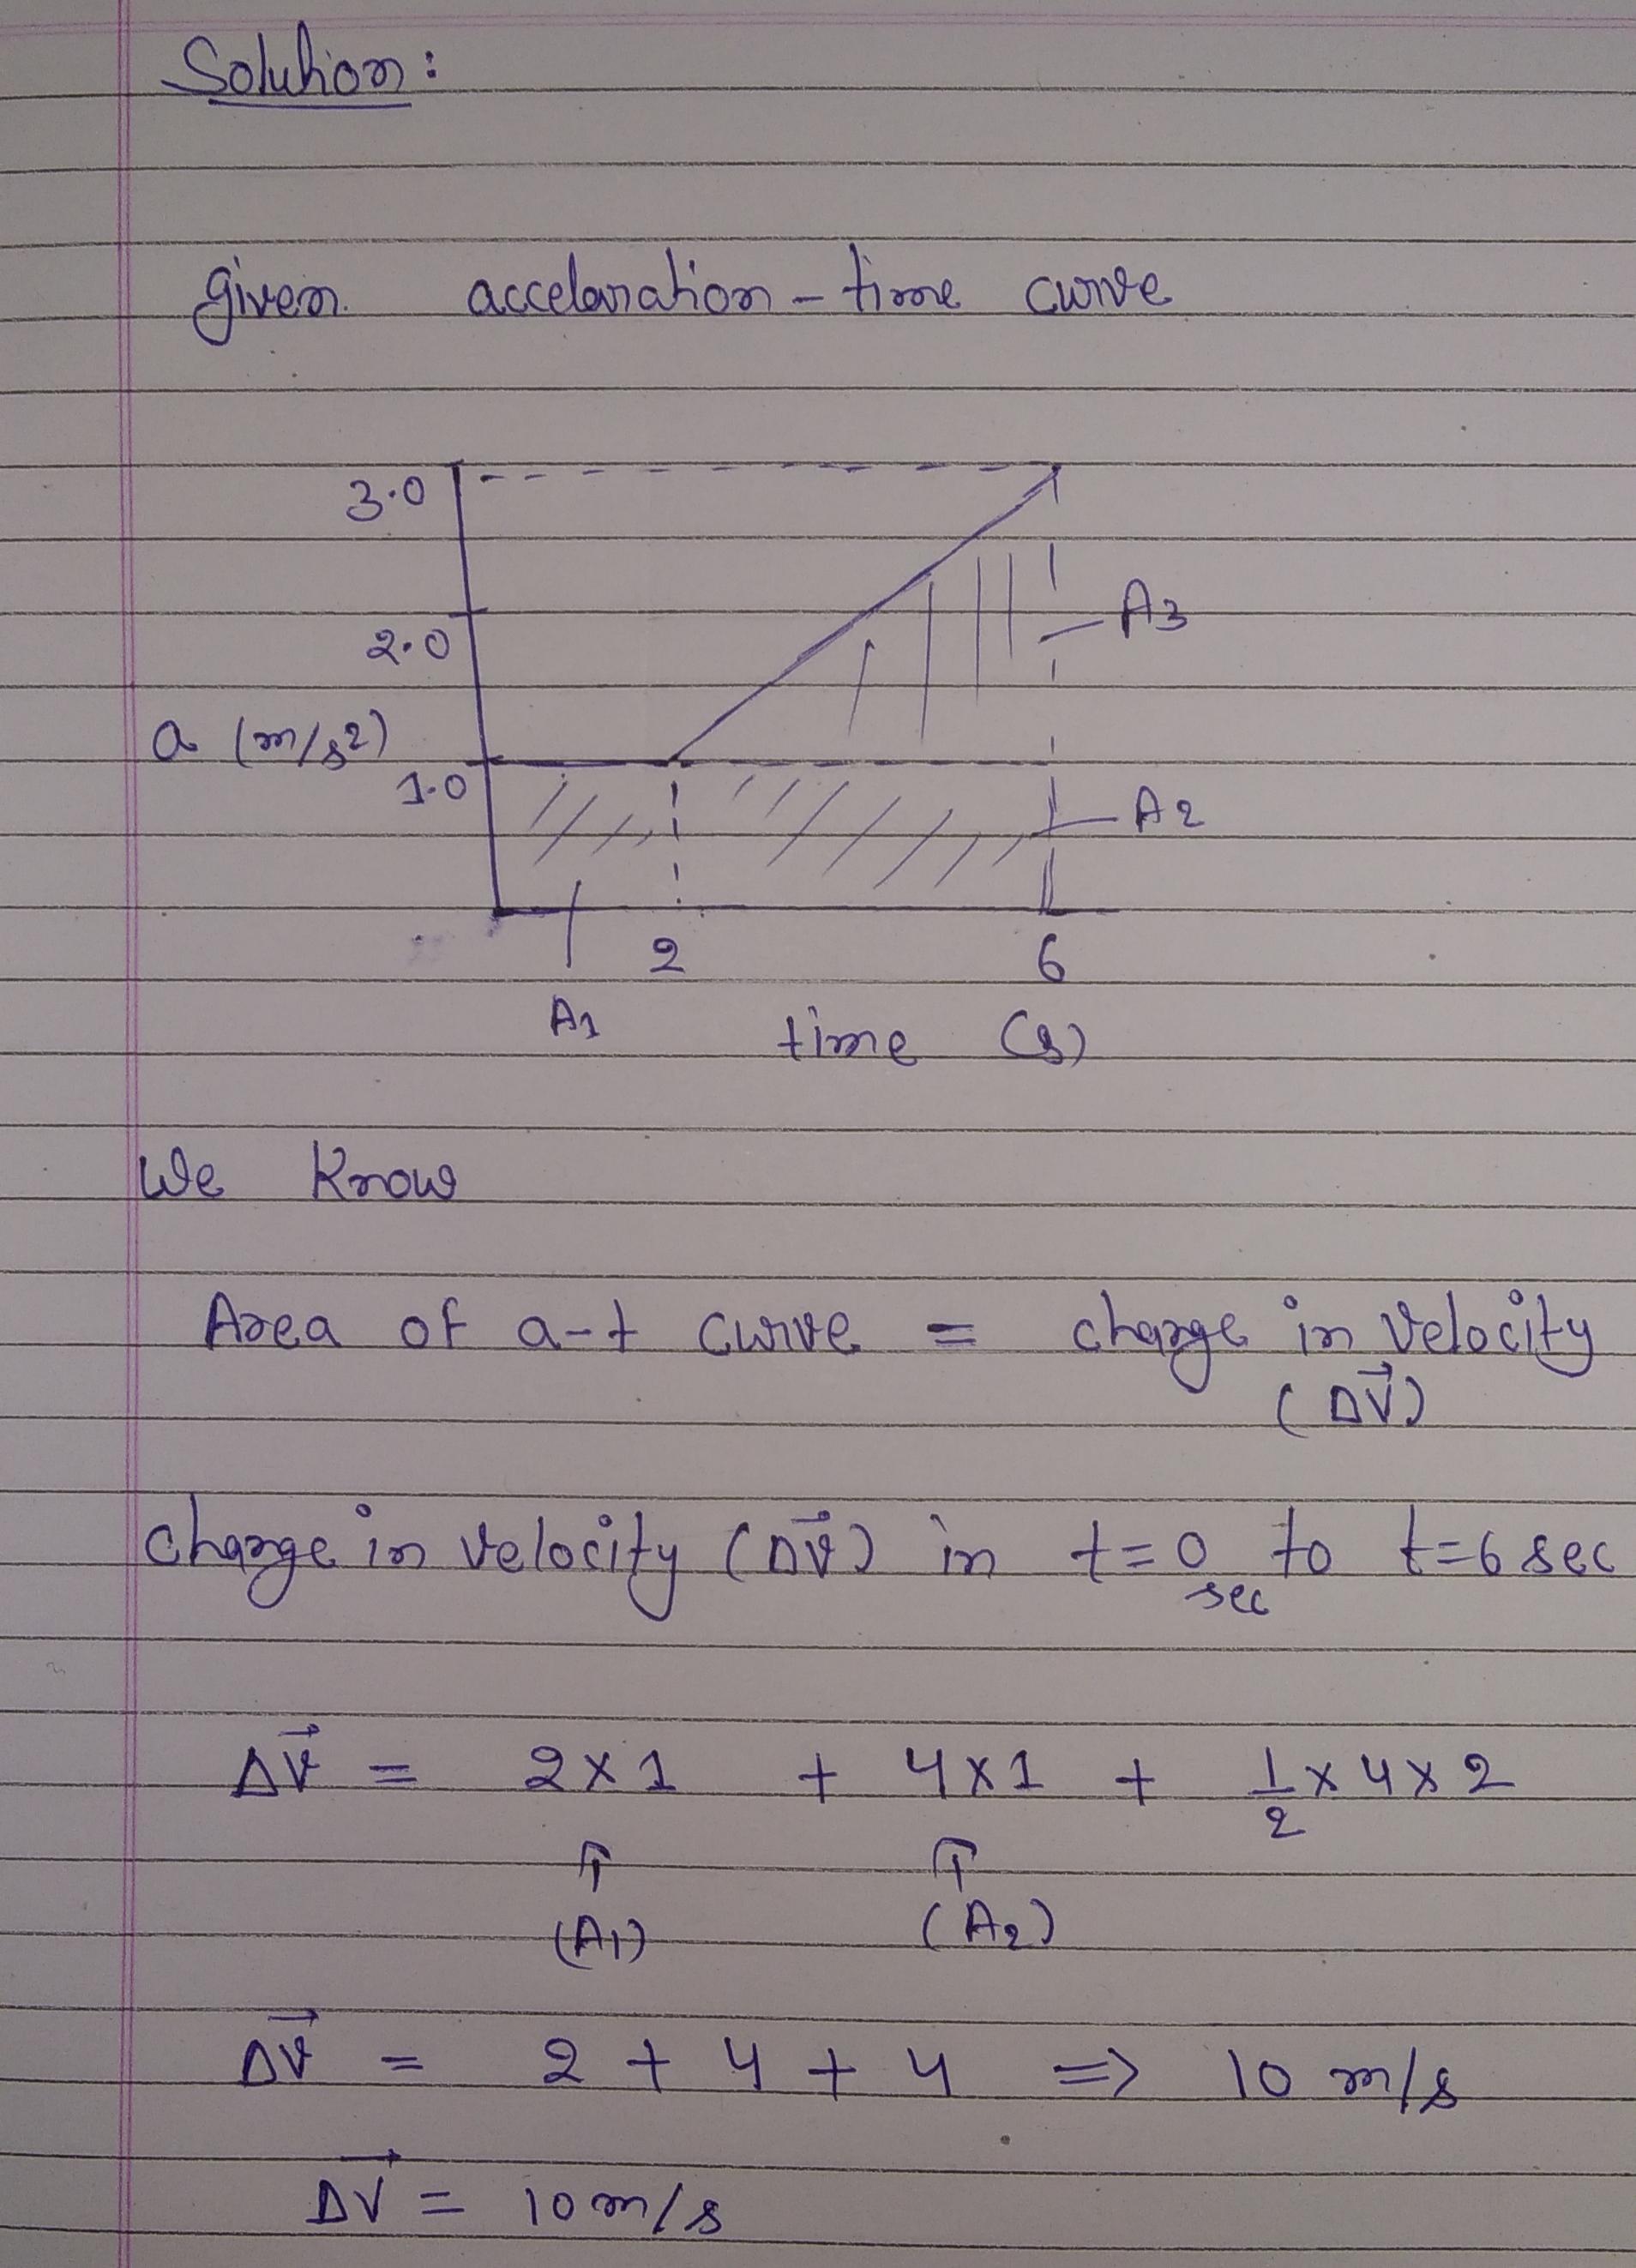 Solution:
given acceleration - time curve
3.0
A3
2.0
a (m/s²)
1.0
A2
2 6
A1 time (s)
We Know
Area of a-t curve = change in velocity
(ΔV⃗)
change in velocity (Δv⃗) in t=0 to t=6 sec
sec
Δv⃗ = 2×1 + 4×1 + 1/2 × 4×2
↑ ↑
(A1) (A2)
Δv⃗ = 2 + 4 + 4 => 10 m/s
ΔV⃗ = 10 m/s